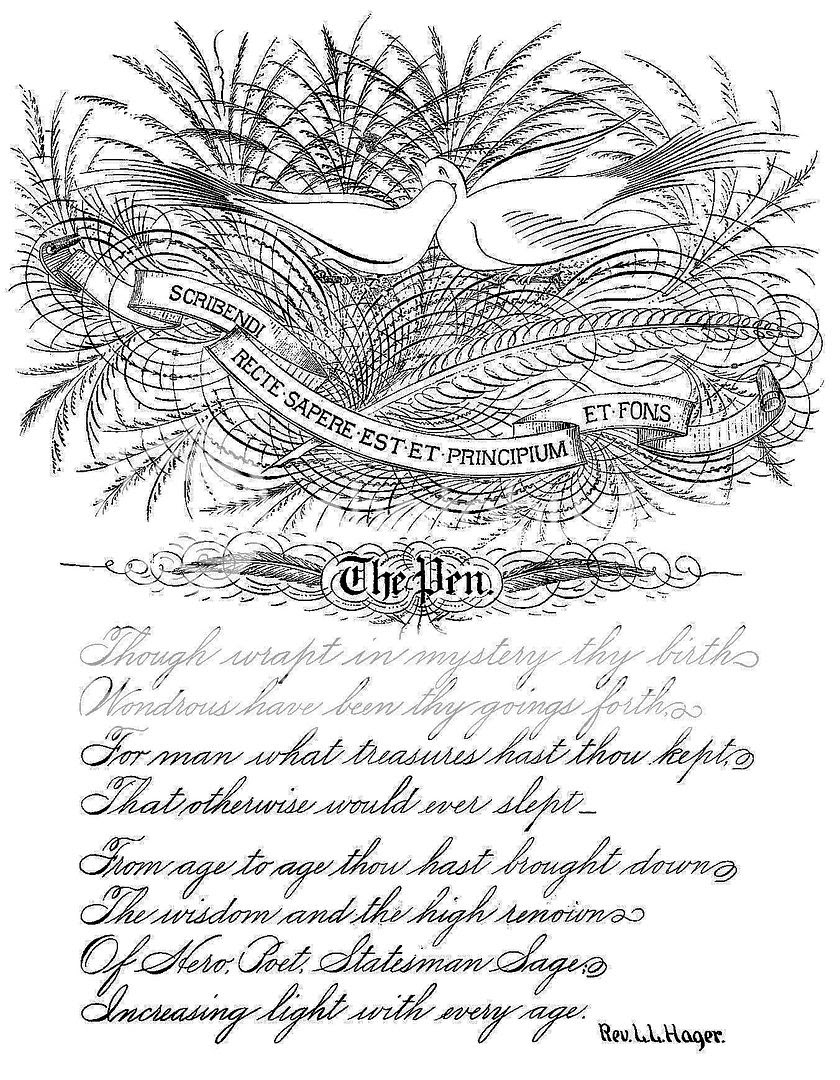 SCRIBENDI
RECTE·SAPERE·EST·ET·PRINCIPIUM
ET·FONS
The Pen.
Though wrapt in mystery thy birth
Wondrous have been thy goings forth,
For man what treasures hast thou kept,
That otherwise would ever slept_
From age to age thou hast brought down
The wisdom and the high renown
Of Hero, Poet, Statesman Sage,
Increasing light with every age.
Rev. L.L. Hager.